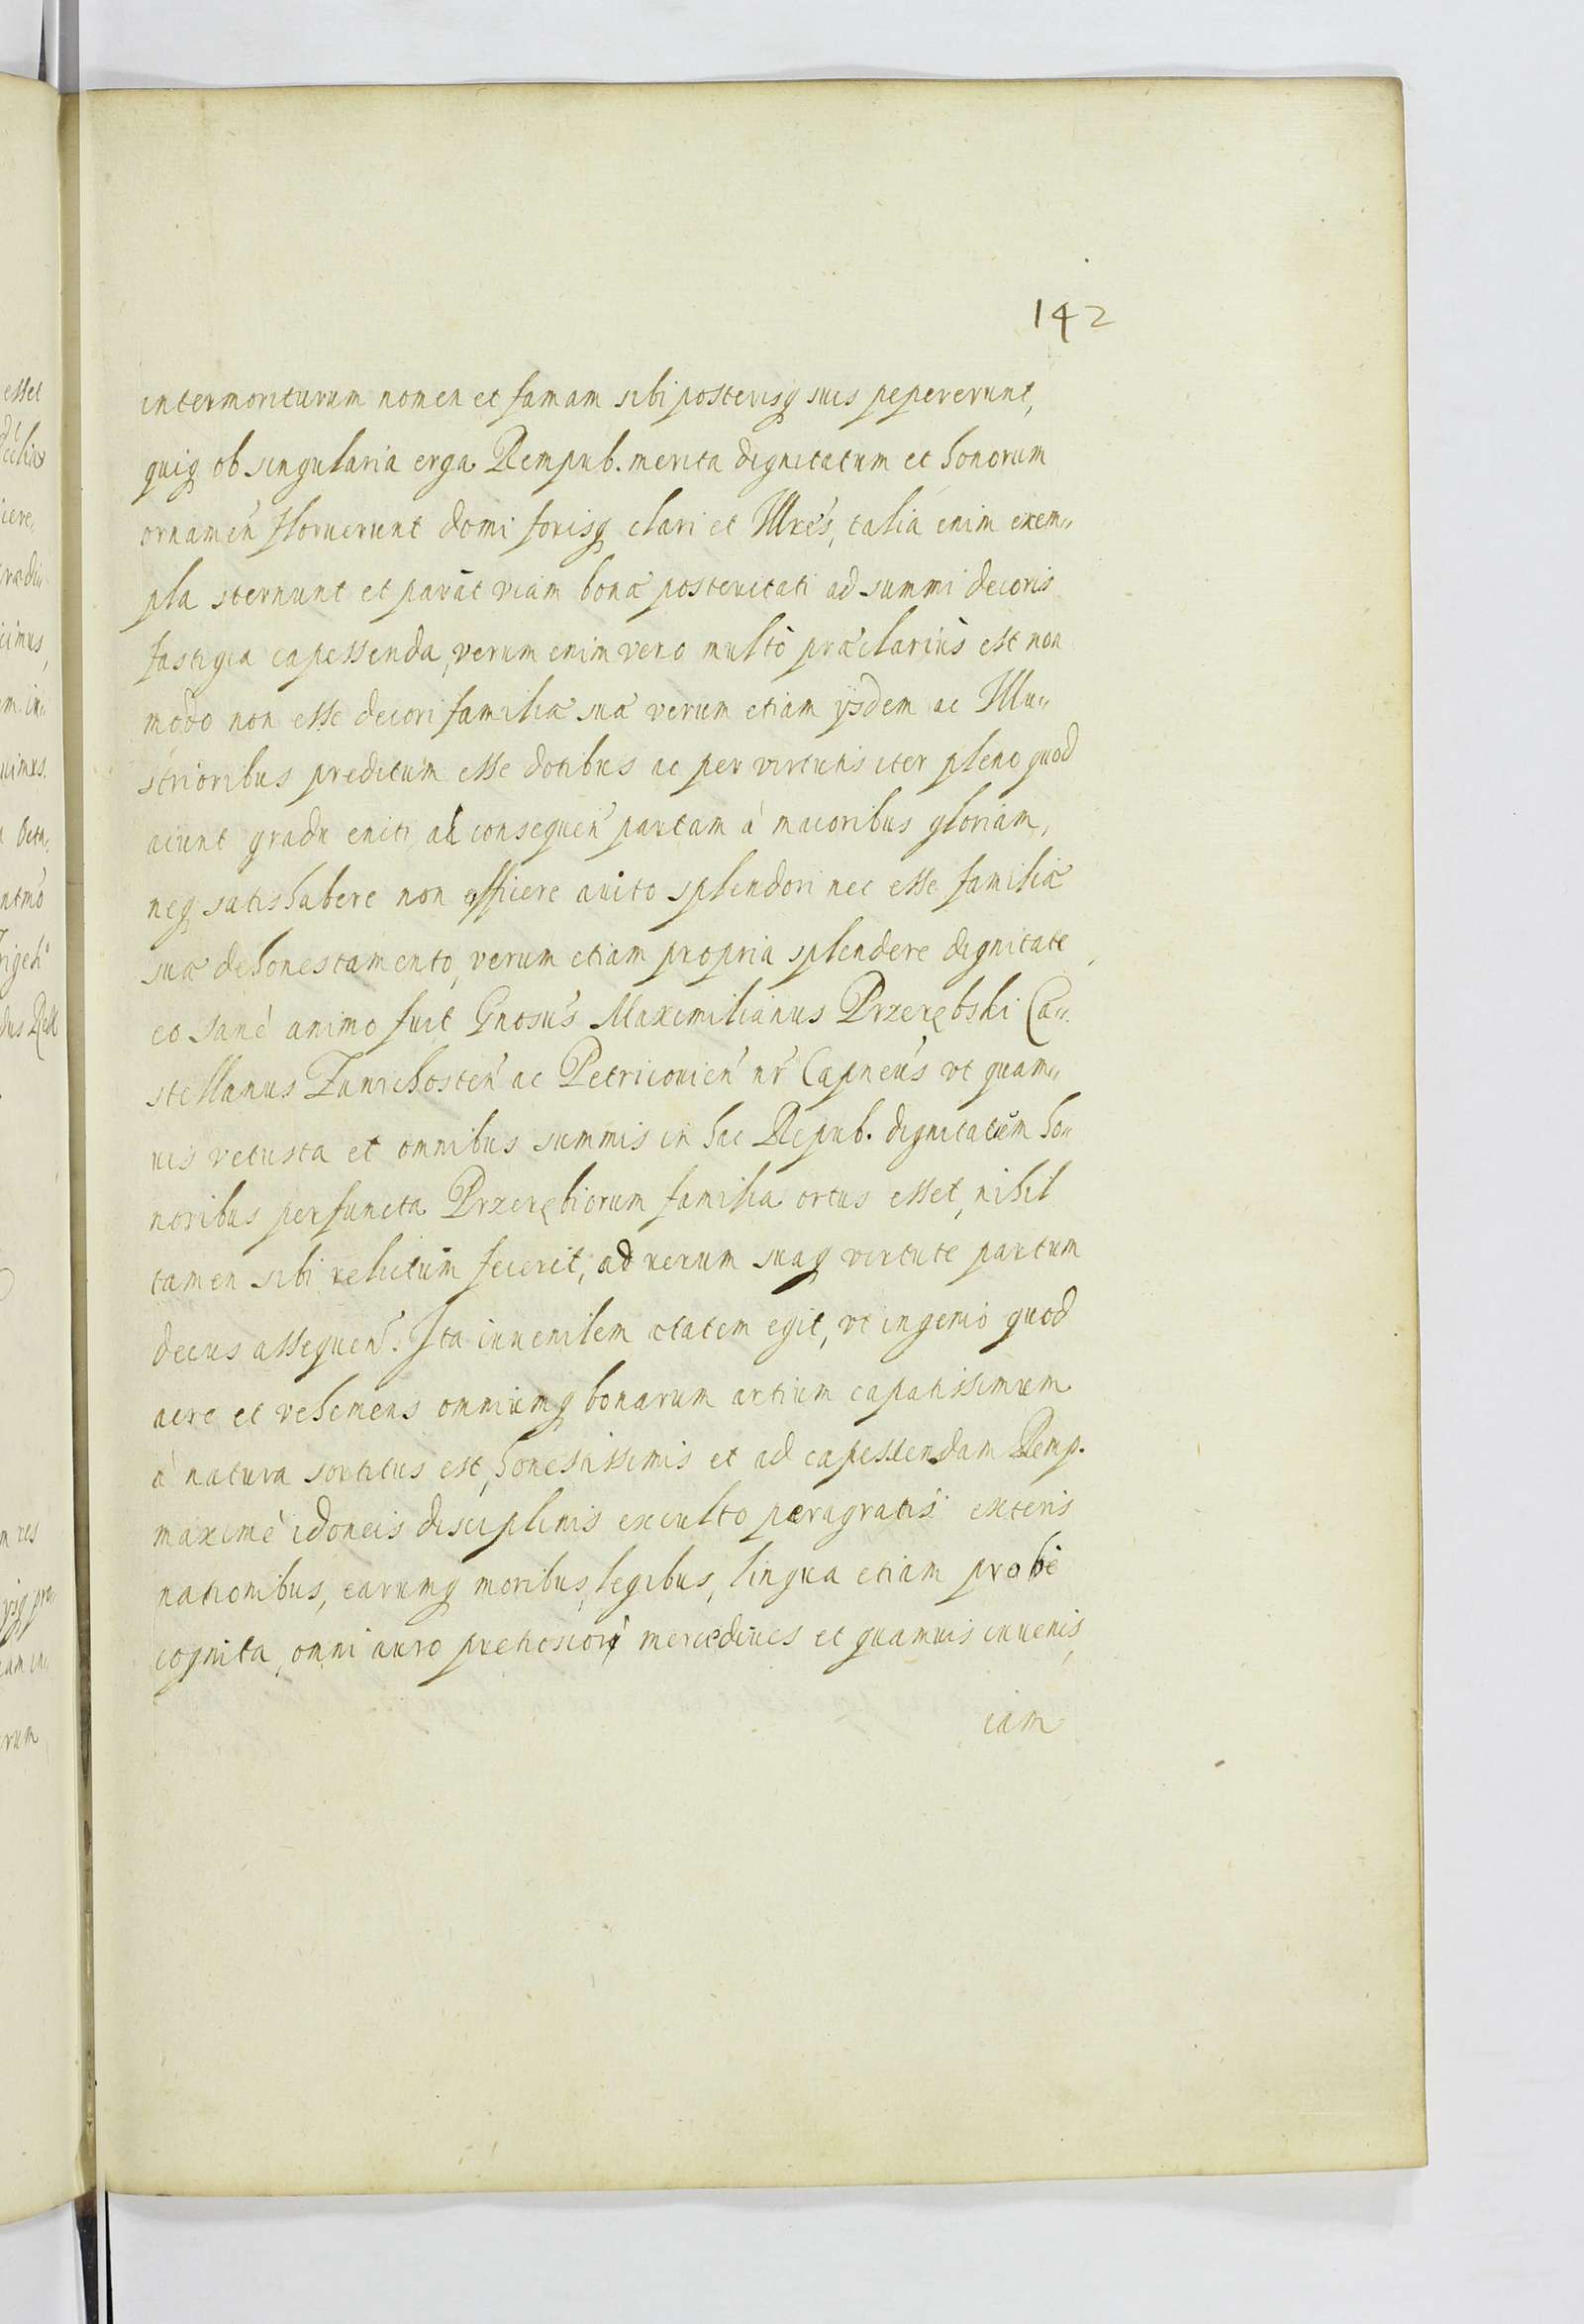 142
intermoriturum nomen et famam sibi posterisq suis pepererunt,
quiq ob singularia erga Rempub. merita dignitatum et honorum
ornamen̄ floruerunt domi forisq clari et Illres, talia enim exem„
pla sternunt et parāt viam bonæ posteritati ad summi decoris
fastigia capessenda, verum enim vero multò præclarius est non
modo non esse decori familiæ suæ verum etiam ijsdem ac Illu„
strioribus preditum esse dotibus ac per virtutis iter pleno quod
aiunt gradu eniti, ad consequen̄ partam à maioribus gloriam,
neq satis habere non officere auito splendori nec esse familiæ
suæ dehonestamento, verum etiam propria splendere dignitate
eo sanè animo fuit Gnosus Maximilianus Przerębski Ca„
stellanus Zawichosten̄ ac Petricouien̄ nr̄ Capneus vt quam„
uis vetusta et omnibus summis in hac Repub. dignitatum ho„
noribus perfuncta Przerębiorum familia ortus esset, nihil
tamen sibi relictum fecerit, ad verum suaq virtute partum
decus assequen̄. Ita iuuenilem ætatem egit, vt ingenio quod
acre et vehemens omniumq bonarum artium capatissimum
à natura sortitus est, honestissimis et ad capessendam Remp.
maximè idoneis disciplinis exculto peragratis exteris
nationibus, earumq moribus, legibus, lingua etiam probè
cognita, omni auro pretiosiori mercediues et quamuis iuuenis,
iam